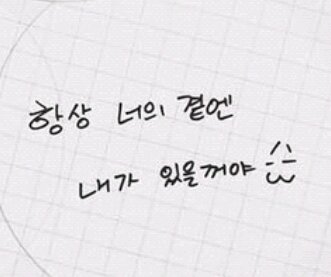 항상 너의 곁엔
내가 있을꺼야